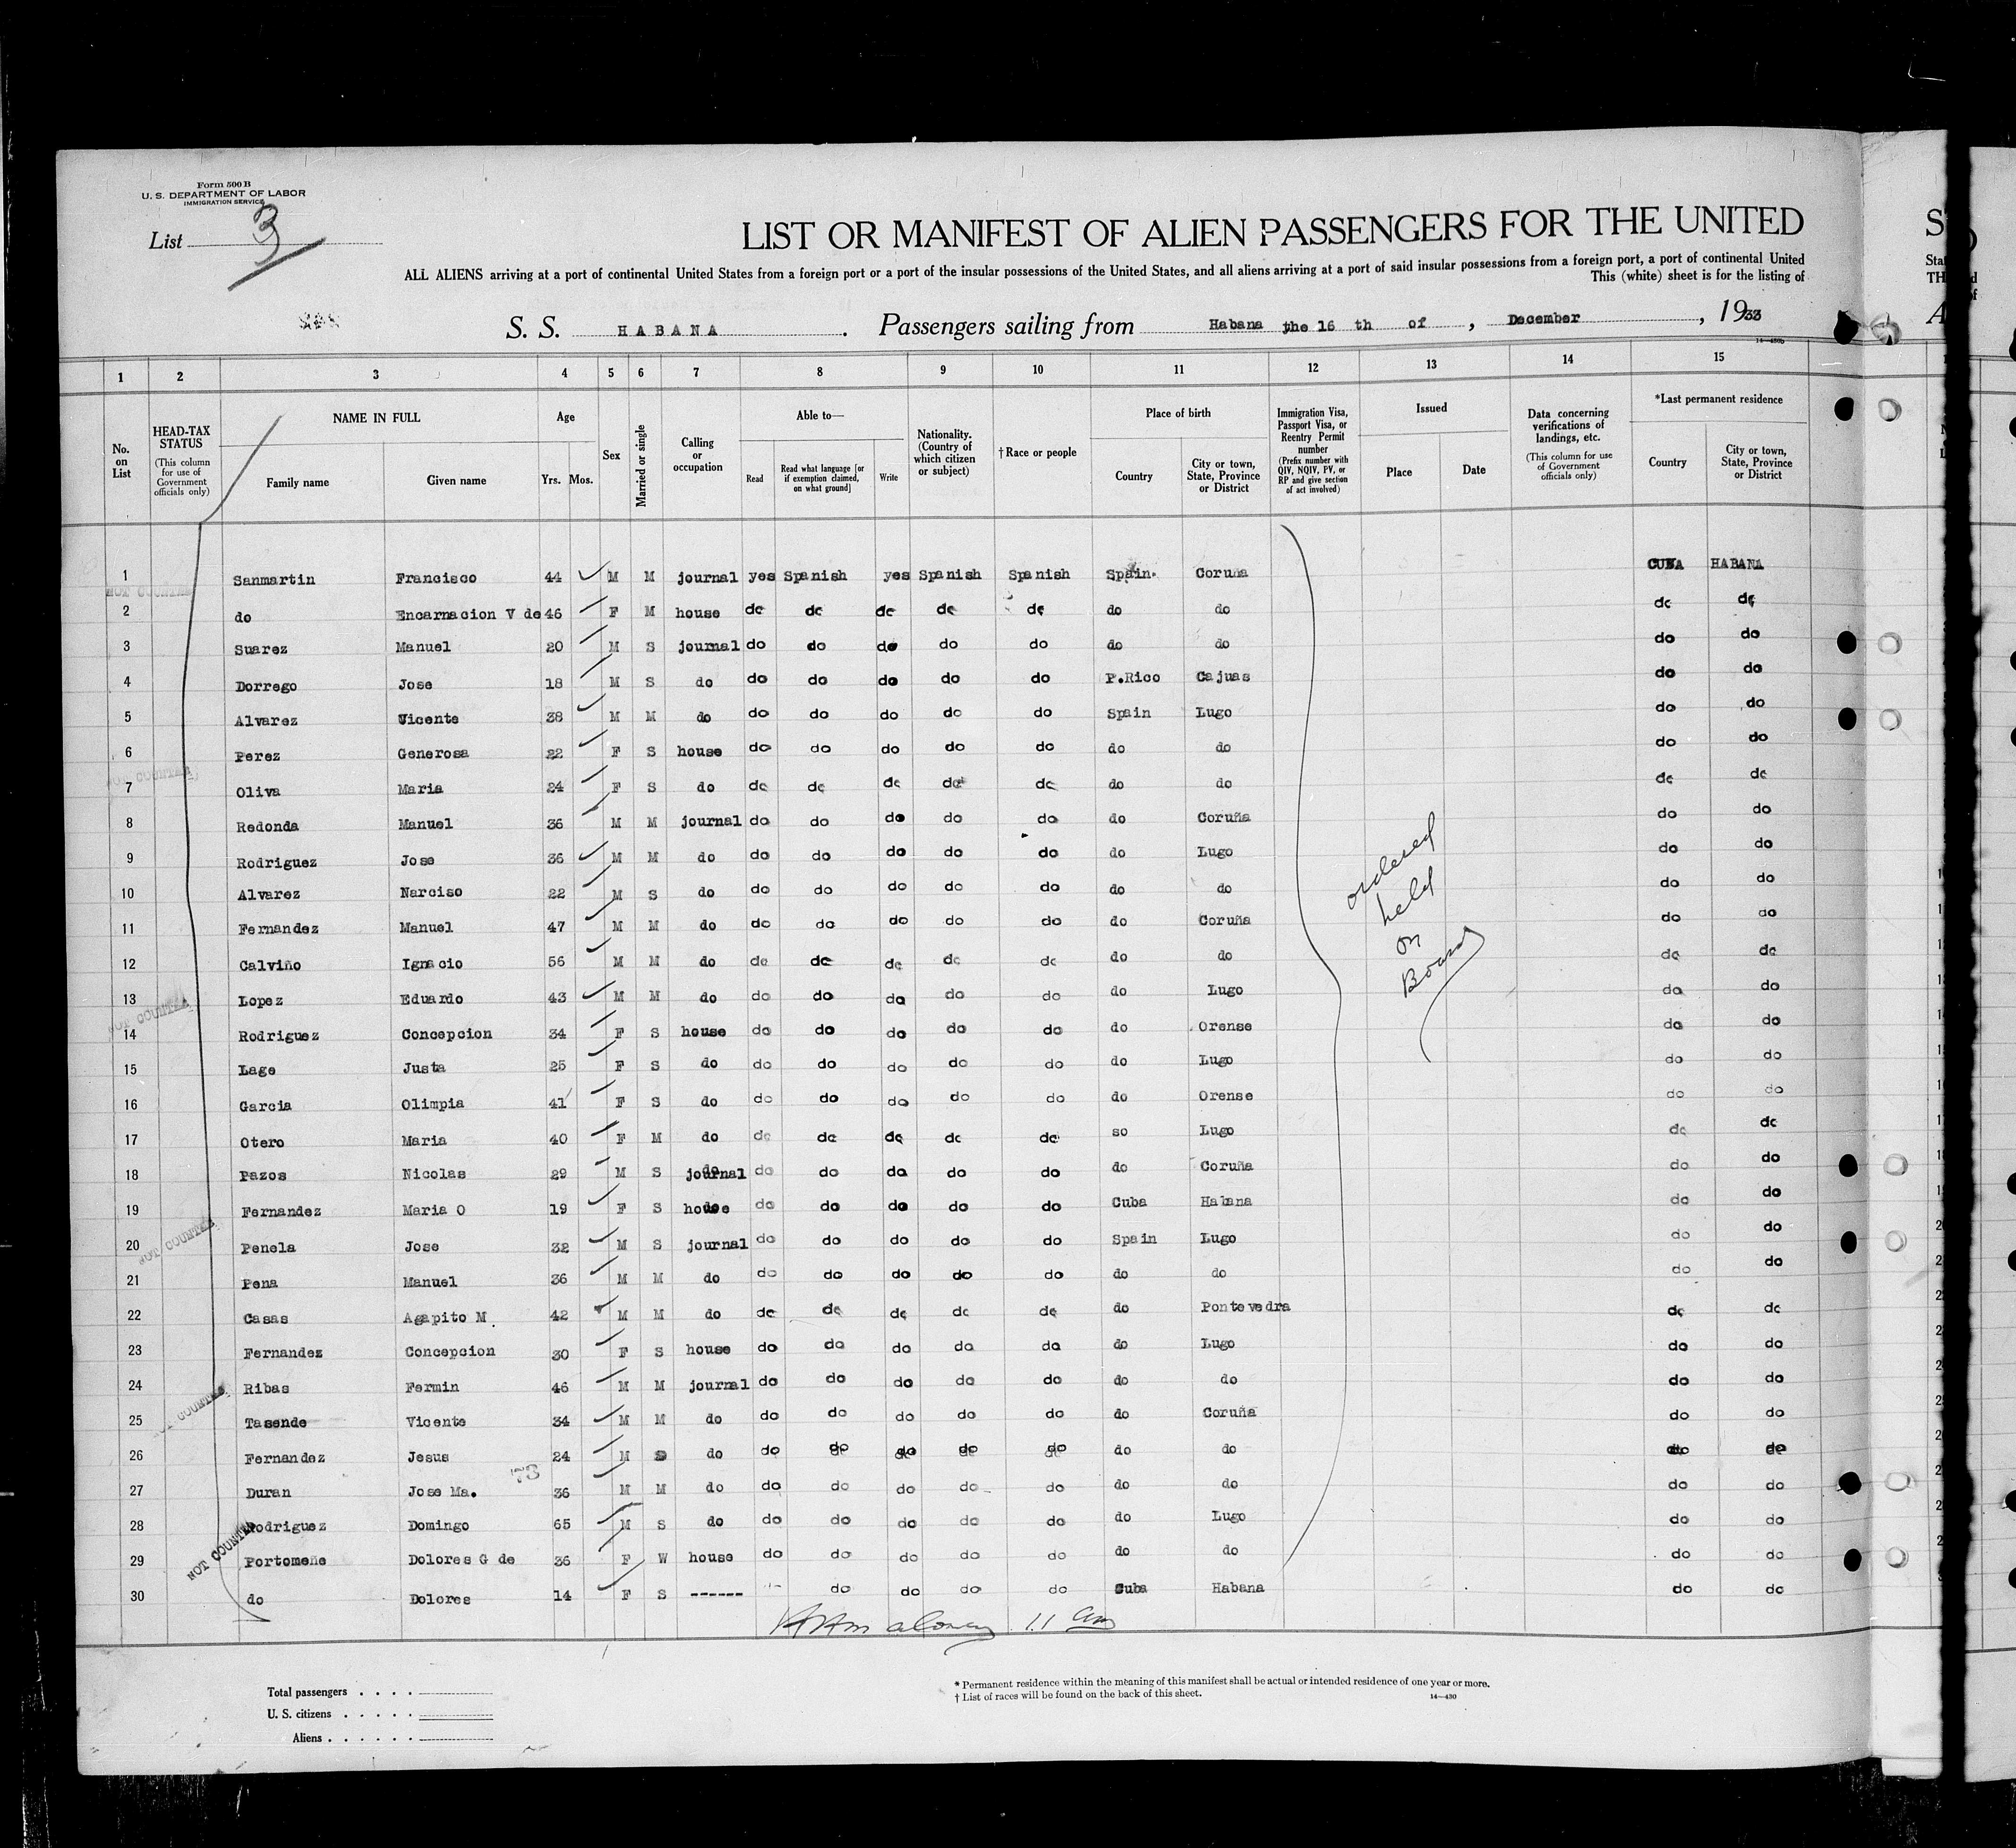 Form 500 B
U. S. DEPARTMENT OF LABOR
IMMIGRATION SERVICE
List 3
LIST OR MANIFEST OF ALIEN PASSENGERS FOR THE UNITED
ALL ALIENS arriving at a port of continental United States from a foreign port or a port of the insular possessions of the United States, and all aliens arriving at a port of said insular possessions from a foreign port, a port of continental United
This (white) sheet is for the listing of
S. S. HABANA. Passengers sailing from Habana the 16 th of, December, 1933
14—430b
1 2 3 4 5 6 7 8 9 10 11 12 13 14 15
No. on List
HEAD-TAX STATUS (This column for use of Government officials only)
NAME IN FULL
Family name Given name
Age
Yrs. Mos.
Sex
Married or single
Calling or occupation
Able to—
Read
Read what language [or if exemption claimed, on what ground]
Write
Nationality. (Country of which citizen or subject)
†Race or people
Place of birth
Country
City or town, State, Province or District
Immigration Visa, Passport Visa, or Reentry Permit number (Prefix number with QIV, NQIV, PV, or RP and give section of act involved)
Issued
Place Date
Data concerning verifications of landings, etc. (This column for use of Government officials only)
*Last permanent residence
Country
City or town, State, Province or District
1 Sanmartin Francisco 44 M M journal yes Spanish yes Spanish Spanish Spain. Coruña CUBA HABANA
2 do Encarnacion V de 46 F M house do do do do do do do do do
3 Suarez Manuel 20 M S journal do do do do do do do do do
4 Dorrego Jose 18 M S do do do do do do P.Rico Cajuas do do
5 Alvarez Vicente 38 M M do do do do do do Spain Lugo do do
6 Perez Generosa 22 F S house do do do do do do do do do
7 Oliva Maria 24 F S do do do do do do do do do do
8 Redonda Manuel 36 M M journal do do do do do do Coruña do do
9 Rodriguez Jose 36 M M do do do do do do do Lugo do do
10 Alvarez Narciso 22 M S do do do do do do do do do do
11 Fernandez Manuel 47 M M do do do do do do do Coruña do do
12 Calviño Ignacio 56 M M do do do do do do do do do do
13 Lopez Eduardo 43 M M do do do do do do do Lugo do do
14 Rodriguez Concepcion 34 F S house do do do do do do Orense do do
15 Lage Justa 25 F S do do do do do do do Lugo do do
16 Garcia Olimpia 41 F S do do do do do do do Orense do do
17 Otero Maria 40 F M do do do do do do so Lugo do do
18 Pazos Nicolas 29 M S journal do do do do do do Coruña do do
19 Fernandez Maria O 19 F S house do do do do do Cuba Habana do do
20 Penela Jose 32 M S journal do do do do do Spain Lugo do do
21 Pena Manuel 36 M M do do do do do do do do do do
22 Casas Agapito M. 42 M M do do do do do do do Pontevedra do do
23 Fernandez Concepcion 30 F S house do do do do do do Lugo do do
24 Ribas Fermin 46 M M journal do do do do do do do do do
25 Tasende Vicente 34 M M do do do do do do do Coruña do do
26 Fernandez Jesus 24 M S do do do do do do do do do do
27 Duran Jose Ma. 36 M M do do do do do do do do do do
28 Rodriguez Domingo 65 M S do do do do do do do Lugo do do
29 Portomeñe Dolores G de 36 F W house do do do do do do do do do
30 do Dolores 14 F S ------ do do do do Cuba Habana do do
ordered
held
on
Board
73
NOT COUNTED
NOT COUNTED
NOT COUNTED
NOT COUNTED
NOT COUNTED
NOT COUNTED
11 am
Total passengers . . . .
U. S. citizens . . . . .
Aliens . . . . . .
* Permanent residence within the meaning of this manifest shall be actual or intended residence of one year or more.
† List of races will be found on the back of this sheet.
14—430